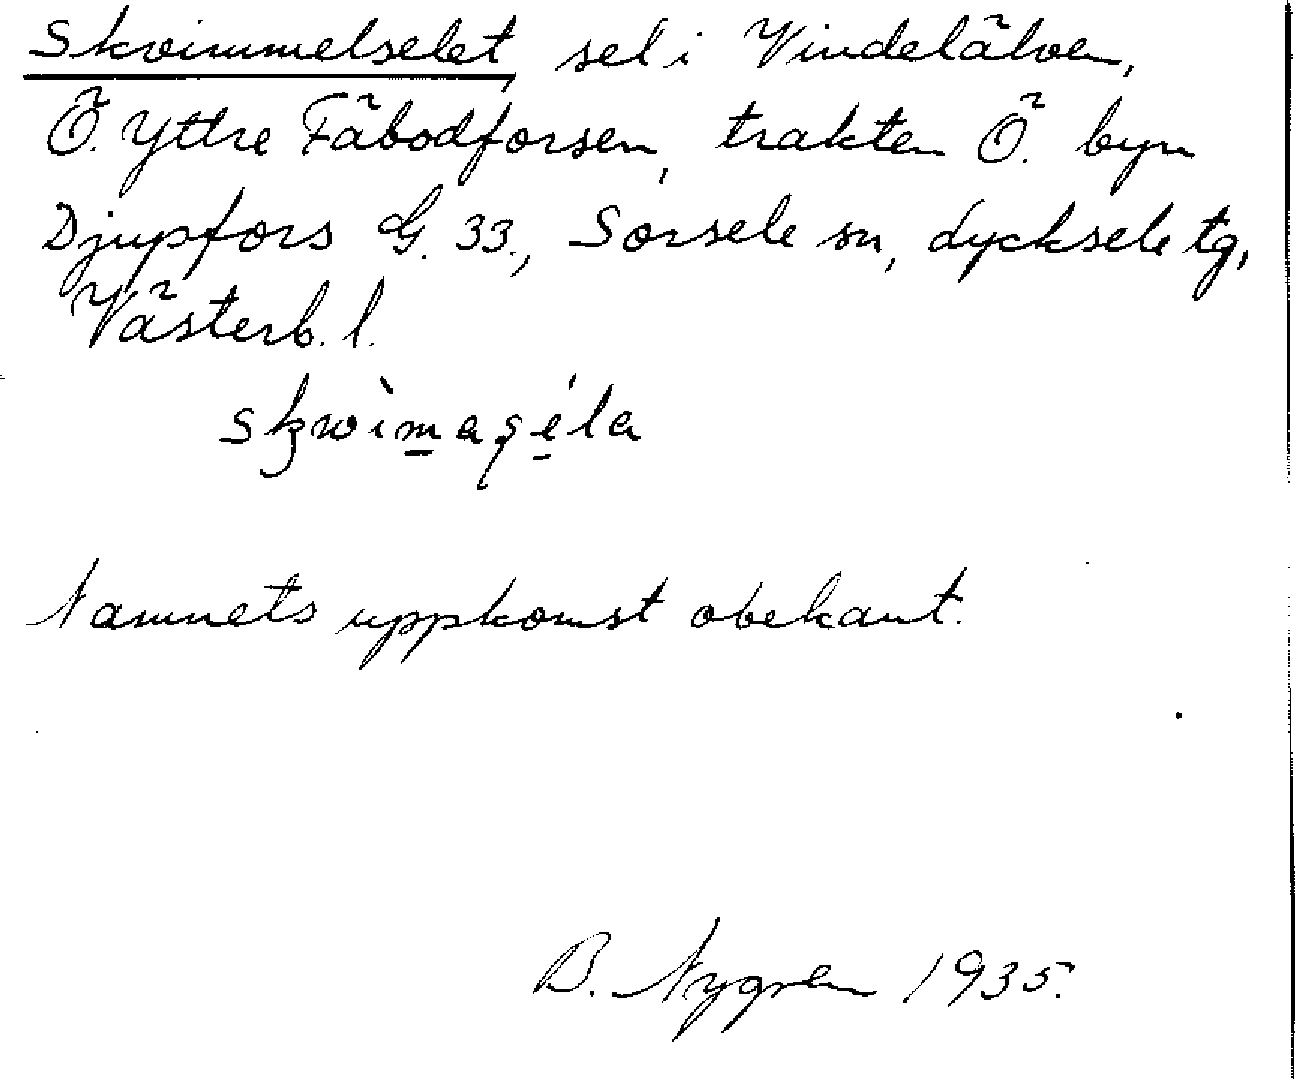 Skvimmelselet, sel i Vindelälven,
Ö. Yttre Fäbodforsen, trakten Ö. byn
Djupfors G. 33., Sorsele sn, Lycksele tg,
Västerb. l.
Namnets uppkomst obekant.
B. Nygren 1935.